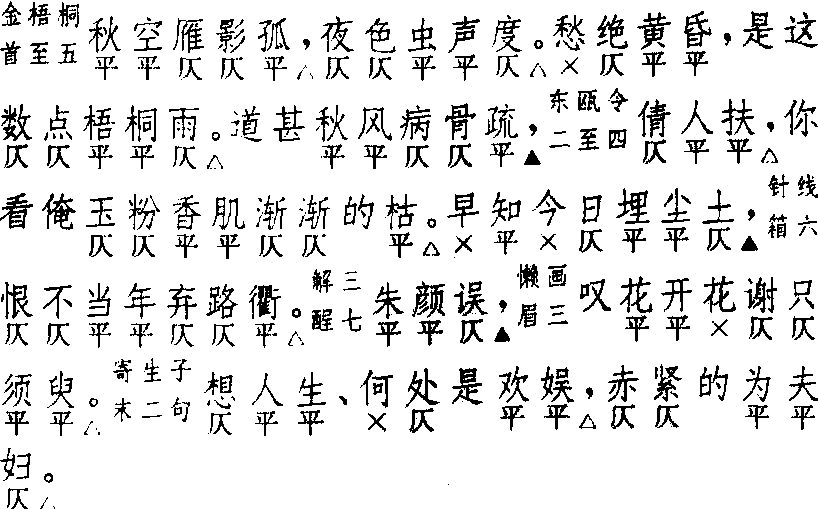 金梧桐首至五 秋空雁影孤，夜色虫声度。愁绝黄昏，是这
平平仄仄平△仄仄平平仄△×仄平平
数点梧桐雨。道甚秋风病骨疏，东瓯令二至四 倩人扶，你
仄仄平平仄△平平仄仄平▲仄平平△
看俺玉粉香肌渐渐的枯。早知今日埋尘土，针线箱六
仄仄平平仄仄平△×平×仄平平仄▲
恨不当年弃路衢。解三醒七 朱颜误，懒画眉三 叹花开花谢只
仄仄平平仄仄平△平平仄▲平平×仄仄
须臾。寄生子末二句 想人生、何处是欢娱，赤紧的为夫
平平△仄平平×仄平平△仄仄平平
妇。
仄△